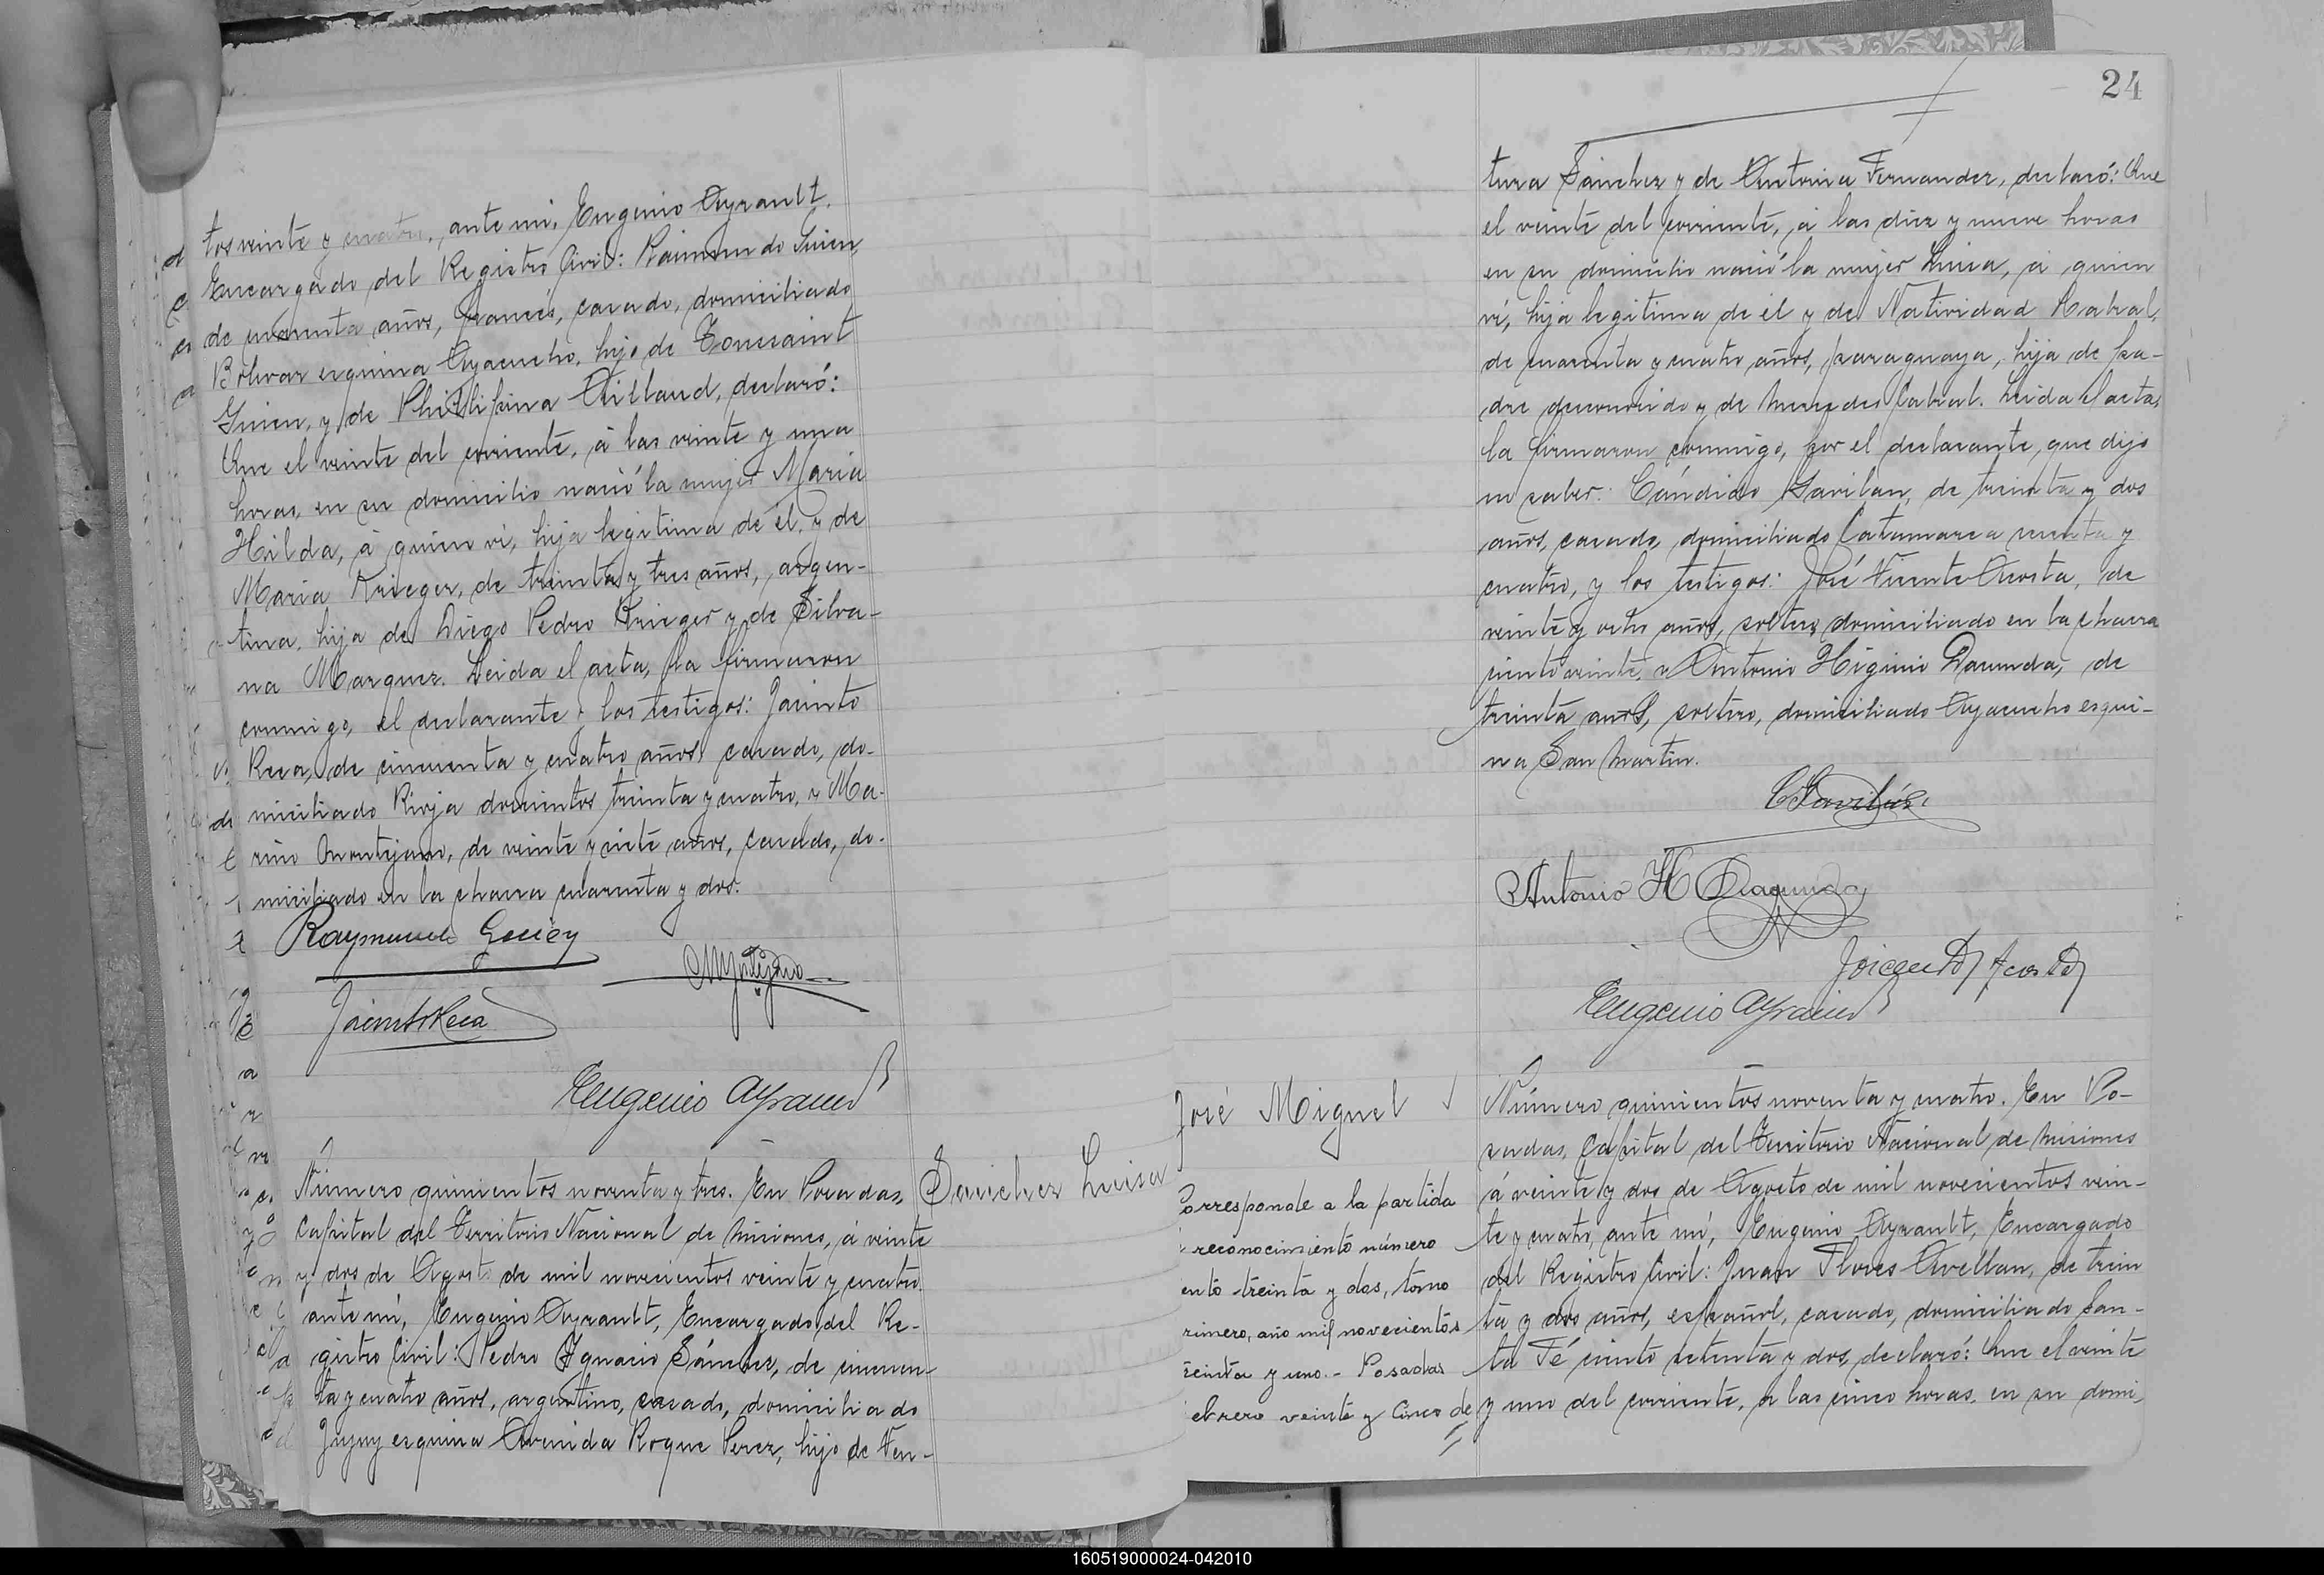 tos veinte y cuatro, ante mi, Eugenio Ayrault,
Encargado del Registro Civil: Raimundo Guien,
de cuarenta años, francés, casado, domiciliado
Bolivar esquina Ayacucho, hijo de Toussaint
Guien, y de Phillipina Aillaud, declaró:
Que el veinte del corriente, á las veinte y una
horas, en su domicilio nació la mujer Maria
Hilda, á quien ví, hija legitima de él, y de
Maria Krieger, de treinta y tres años, argen-
tina, hija de Diego Pedro Krieger y de Silva-
na Marquez. Leida el acta, la firmaron
conmigo, el declarante y los testigos: Jacinto
Reca, de cincuenta y cuatro años, casado, do-
miciliado Rioja doscientos treinta y cuatro, y Ma-
rino Montejano, de veinte y siete años, casado, do-
miciliado en la chacra cuarenta y dos.
Raymundo
Jacinto Reca
Eugenio Ayrault
Número quinientos noventa y tres. En Posadas,
Capital del Territorio Nacional de Misiones, á veinte
y dos de Agosto de mil novecientos veinte y cuatro
ante mí, Eugenio Ayrault, Encargado del Re-
gistro Civil: Pedro Ignacio Sánchez, de cincuen-
ta y cuatro años, argentino, casado, domiciliado
Jujuy esquina Avenida Roque Perez, hijo de Ven-
Sanchez Luisa
24
tura Sánchez y de Antonia Fernandez, declaró: Que
el veinte del corriente, á las diez y nueve horas
en su domicilio nació la mujer Luisa, á quien
ví, hija legitima de él y de Natividad Cabral,
de cuarenta y cuatro años, paraguaya, hija de pa-
dre desconocido y de Mercedes Cabral. Leida el acta,
la firmaron conmigo, por el declarante, que dijo
no saber: Cándido Gavilan, de treinta y dos
años, casado, domiciliado Catamarca sesenta y
cuatro, y los testigos: José Vicente Acosta, de
veinte y ocho años, soltero, domiciliado en la chacra
ciento veinte, y Antonio Higinio Daunda, de
treinta años, soltero, domiciliado Ayacucho esqui-
na San Martin.
C Gavilán
Antonio H
Acosta
Eugenio Ayrault
José Miguel
Corresponde a la partida
reconocimiento número
ento treinta y dos, tomo
rimero, año mil novecientos
treinta y uno.- Posadas
ebrero veinte y cinco de
Número quinientos noventa y cuatro. En Po-
sadas, Capital del Territorio Nacional de Misiones
á veinte y dos de Agosto de mil novecientos vein-
te y cuatro, ante mí, Eugenio Ayrault, Encargado
del Registro Civil: Juan Flores Avellan, de trein
ta y dos años, español, casado, domiciliado San-
ta Fé ciento setenta y dos, declaró: Que el veinte
y uno del corriente, a las cinco horas, en su domi-
160519000024-042010